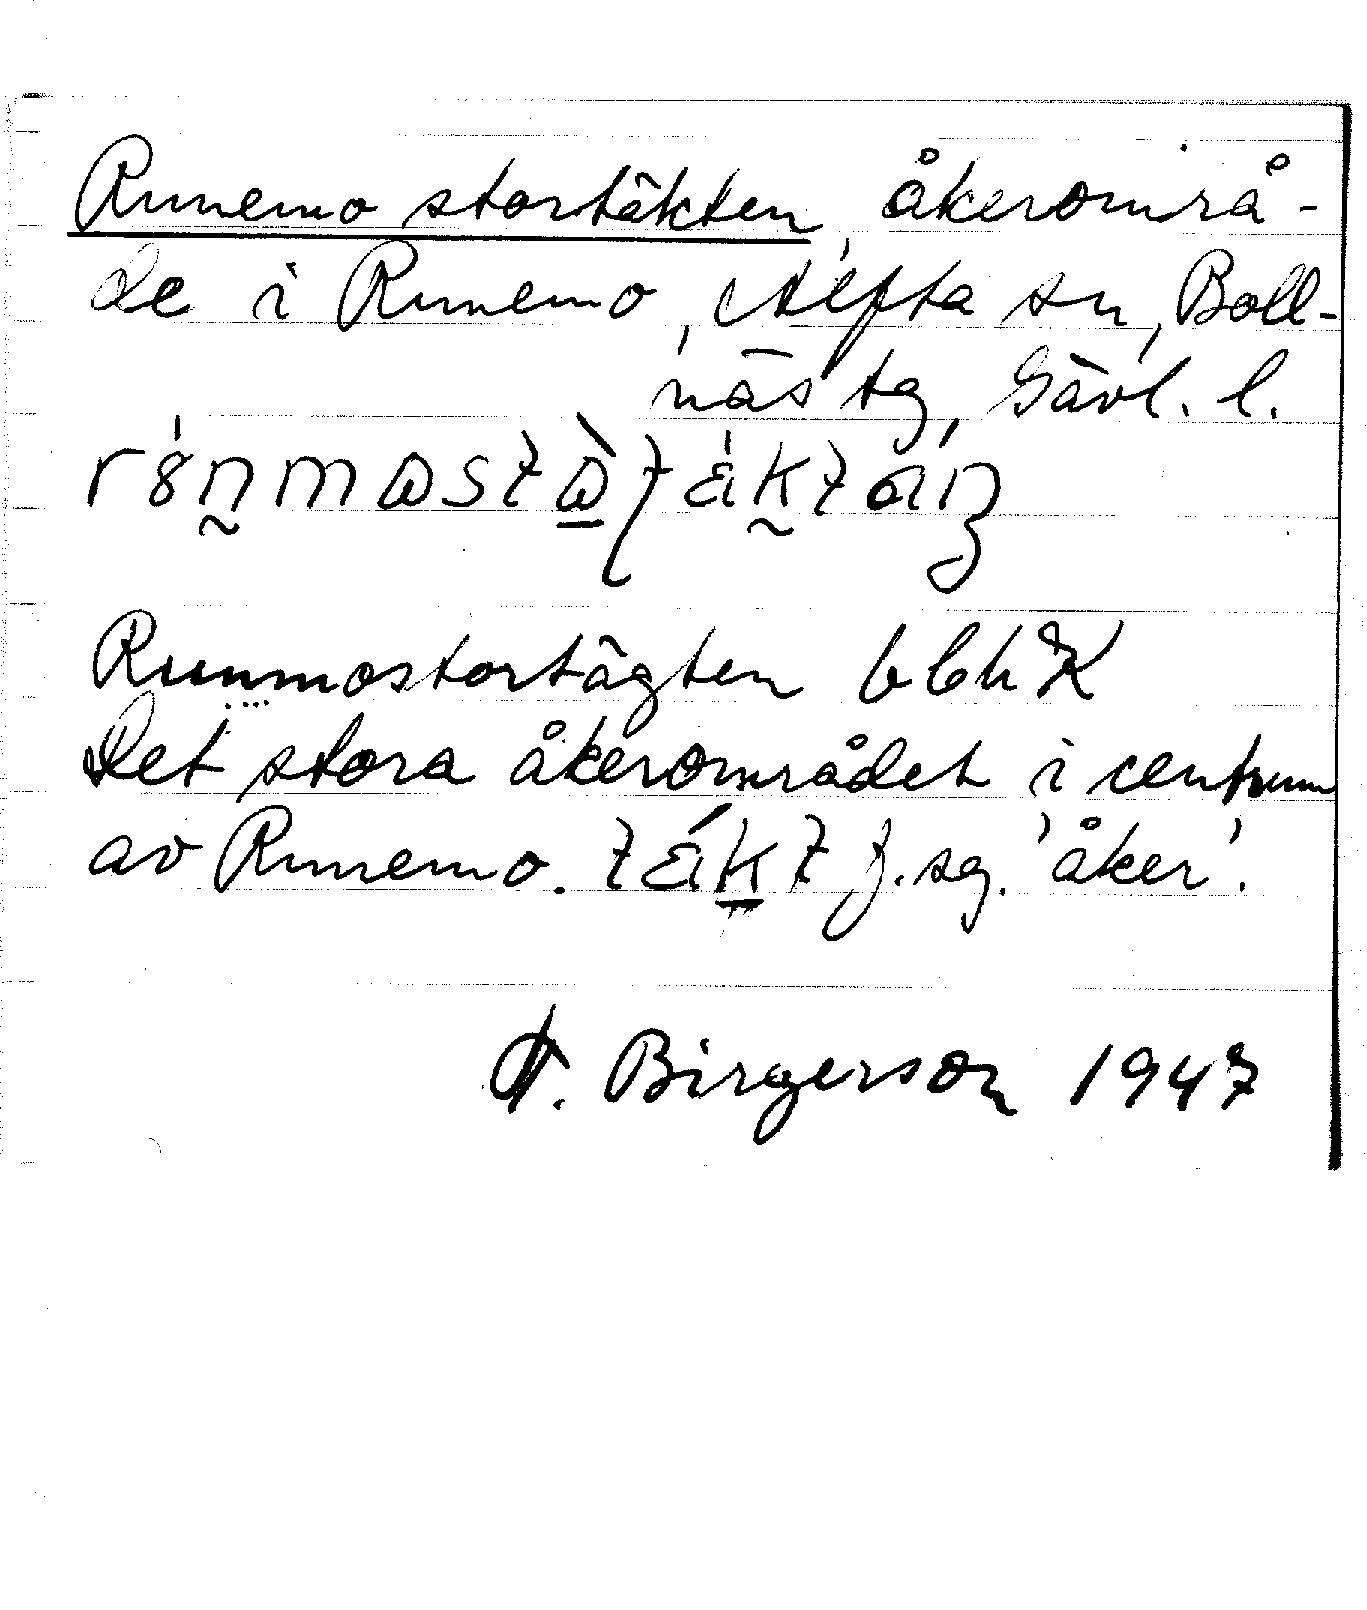 Runemo stortäkten, åkerområ-
de i Runemo, Alfta sn, Boll-
näs tg, Gävl. l.
Runmostortägten bbhK
Det stora åkerområdet i centrum
av Runemo. f. sg. 'åker'.
A. Birgerson 1947